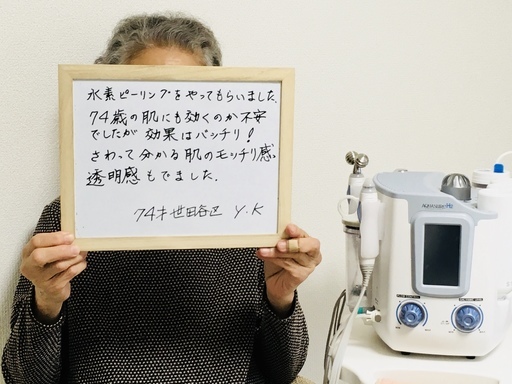 水素ピーリングをやってもらいました。
74歳の肌にも効くのか不安
でしたが効果はバッチリ!
さわって分かる肌のモッチリ感、
透明感もでました。
74才世田谷区 Y.K
AQUASURE H2